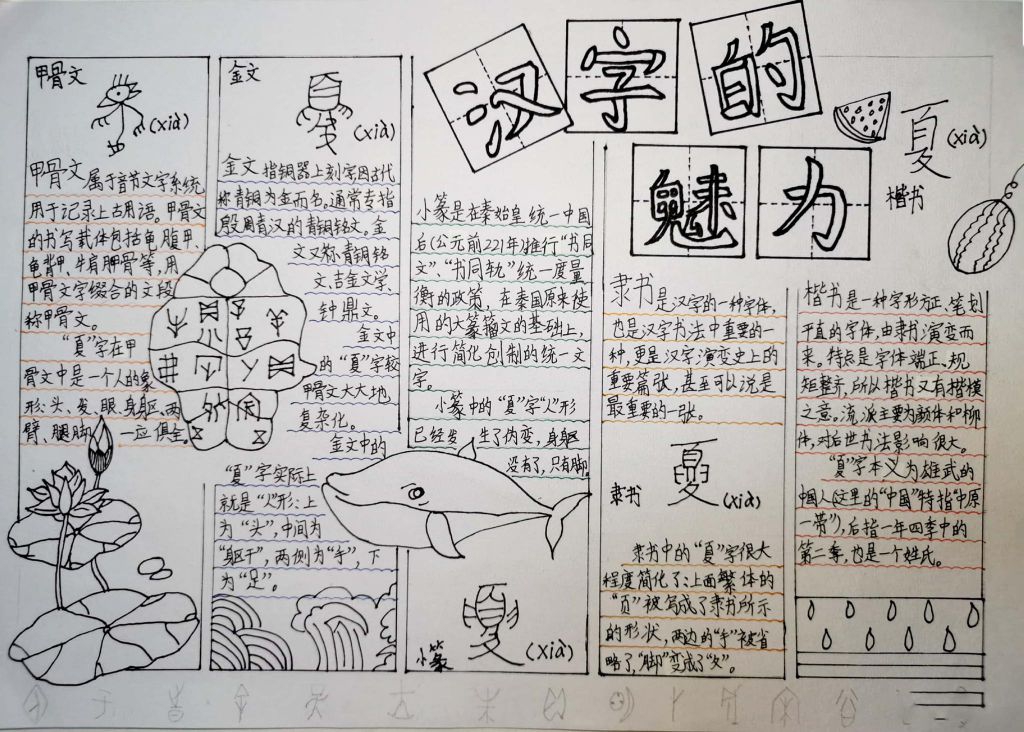 汉字的
魅力
甲骨文
(xià)
甲骨文属于音节文字系统
用于记录上古用语。甲骨文
的书写载体包括龟腹甲、
龟背甲、牛肩胛骨等,用
甲骨文字缀合的文段
称甲骨文。
“夏”字在甲
骨文中是一个人的象
形:头、发、眼、身躯、两
臂、腿脚一应俱全。
金文
(xià)
金文指铜器上刻字因古代
称青铜为金而名。通常专指
殷周青汉的青铜铭文。金
文又称青铜铭
文、吉金文字、
钟鼎文。
金文中
的“夏”字较
甲骨文大大地
复杂化。
金文中的
“夏”字实际上
就是“人”形:上
为“头”,中间为
“躯干”,两侧为“手”,下
为“足”。
小篆是在秦始皇统一中国
后(公元前221年)推行“书同
文”、“书同轨”统一度量
衡的政策,在秦国原来使
用的大篆籀文的基础上,
进行简化创制的统一文
字。
小篆中的“夏”字“人”形
已经发生了伪变,身躯
没有了,只有脚。
小篆
(xià)
隶书是汉字的一种字体,
也是汉字书法中重要的一
种,更是汉字演变史上的
重要篇张,甚至可以说是
最重要的一张。
隶书
夏
(xià)
隶书中的“夏”字很大
程度简化了:上面繁体的
“页”被写成了隶书所示
的形状,两边的“手”被省
略了,“脚”变成了“夂”。
夏
(xià)
楷书
楷书是一种字形方正、笔划
平直的字体,由隶书演变而
来。特点是字体端正、规
矩整齐,所以楷书又有楷模
之意。流派主要为颜体和柳
体,对后世书法影响很大。
“夏”字本义为雄武的
中国人(这里的“中国”特指“中原
一带”),后指一年四季中的
第二季,也是一个姓氏。